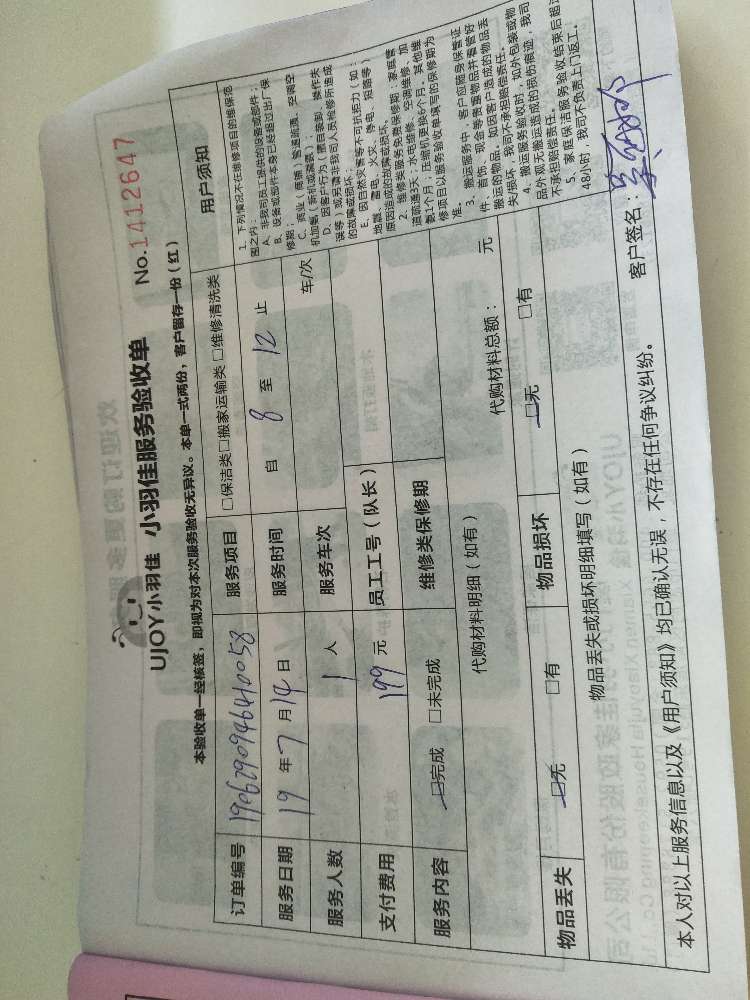 UJOY小羽佳 小羽佳服务验收单 No.1412647
本验收单一经核签，即视为对本次服务验收无异议。本单一式两份，客户留存一份（红）
订单编号 190629094641005​8 服务项目 □保洁类□搬家运输类 □维修清洗类 用户须知
服务日期 19 年 7 月 14 日 服务时间 自 8 至 12 止
服务人数 1 人 服务车次 车/次
支付费用 199 元 员工工号（队长）
服务内容 □完成 □未完成 维修类保修期
代购材料明细（如有） 代购材料总额： 元
物品丢失 □无 □有 物品损坏 □无 □有
物品丢失或损坏明细填写（如有）
1、下列情况不在维修项目的维保范
围之内：
A、非我司员工提供的设备或部件；
B、设备或部件本身已经超过出厂保
修期；
C、商业（商铺）管道疏通、空调空
机加氨（新机或满氨）；
D、因客户行为（擅自装卸、操作失
误等）或另请非我司人员检修所造成
的故障或损坏；
E、因自然灾害等不可抗拒力（如：
地震、雷电、火灾、停电、短路等
原因造成的故障或损坏。
2、维修类服务免费保修期：家庭管
道疏通3天；水电维修、空调维修、加
氨1个月；压缩机更换6个月。其他维
修项目以服务验收单填写的保修期为
准。
3、搬运服务中，客户应随身保管证
件、首饰、现金等贵重物品并看管好
搬运的物品。如因客户造成的物品丢
失/损坏，我司不承担赔偿责任。
4、搬运服务验收时，如外包装或物
品外观无搬运造成的损伤痕迹，我司
不承担赔偿责任。
5、家庭保洁服务验收结束后超过
48小时，我司不负责上门返工。
本人对以上服务信息以及《用户须知》均已确认无误，不存在任何争议纠纷。 客户签名：